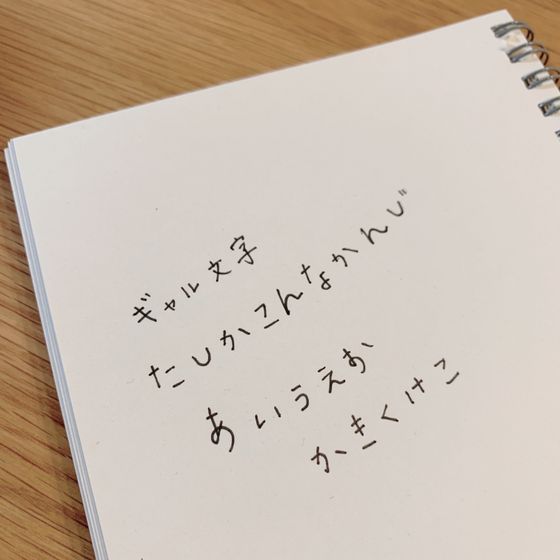 ギャル文字
たしかこんなかんじ
あいうえお
かきくけこ